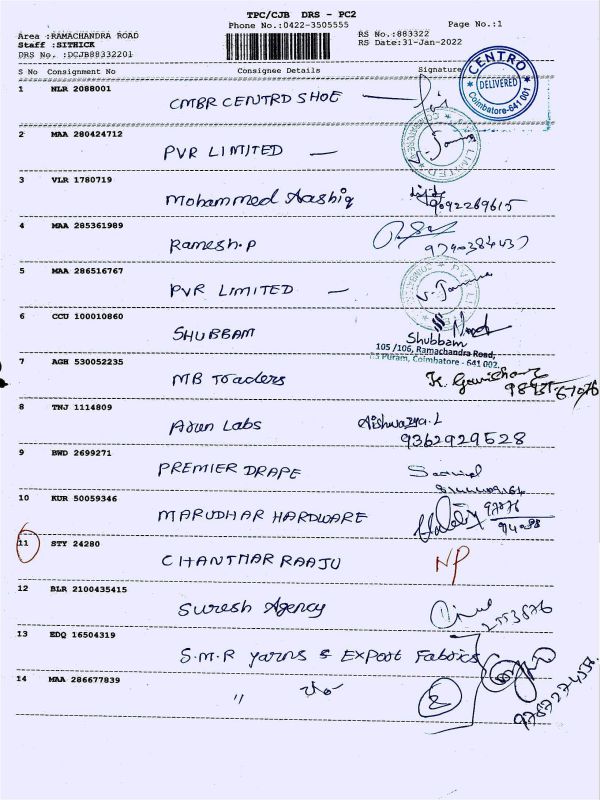 TPC/CJB DRS - PC2
Phone No.:0422-3505555
Page No.:1
Area :RAMACHANDRA ROAD
RS No.:883322
Staff :SITHICK
RS Date:31-Jan-2022
DRS No. :DCJB88332201
S No Consignment No Consignee Details Signature
CENTRO
DELIVERED
Coimbatore-641 001
1 NLR 2088001
CMBR CENTRO SHOE
2 MAA 280424712
PVR LIMITED
3 VLR 1780719
Mohammed Aashiq
9092269615
4 MAA 285361989
Ramesh.P
5 MAA 286516767
PVR LIMITED
6 CCU 100010860
SHUBBAM
Shubbam
105 /106, Ramachandra Road,
Puram, Coimbatore - 641 002.
7 AGH 530052235
MB Traders
8 TNJ 1114809
Arun Labs
Aishwarya.L
9362929528
9 BWD 2699271
PREMIER DRAPE
10 KUR 50059346
MARUDHAR HARDWARE
11 STY 24280
CHANTMAR RAAJU
NP
12 BLR 2100435415
Suresh Agency
2553876
13 EDQ 16504319
S.M.R Yarns & Export Fabrics
14 MAA 286677839
"
2